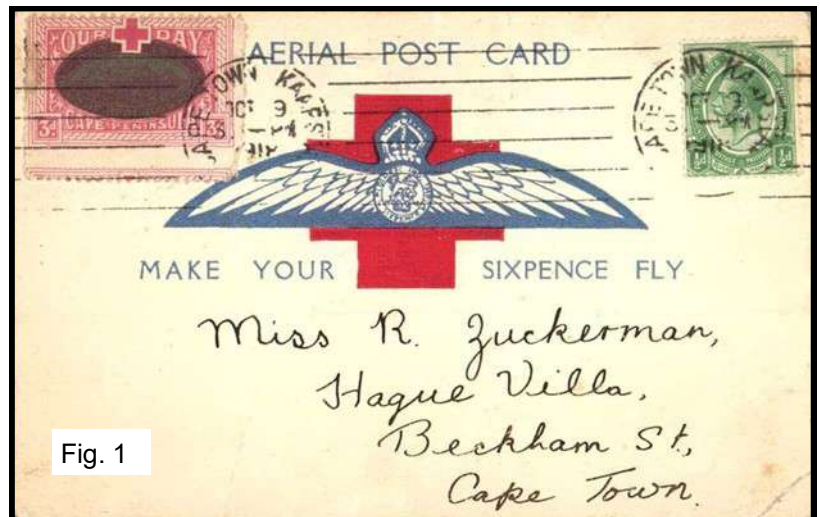 OUR DAY
3d CAPE PENINSULA
AERIAL POST CARD
CAPE TOWN KAAPSTAD
OCT 9
CAPE TOWN KAAPSTAD
OCT 9
½d ½d
MAKE YOUR SIXPENCE FLY
Miss R. Zuckerman,
Hague Villa,
Beckham St,
Cape Town.
Fig. 1